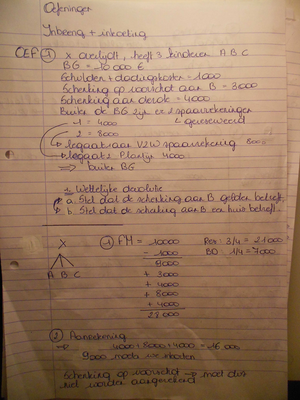 Oefeningen
Inbreng + inkorting
OEF 1 X overlijdt, heeft 3 kinderen A B C
BG = 10 000 €
Schulden + dodingskosten = 1000
Schenking op voorschot aan B = 3000
Schenking aan derde = 4000
Buiten de BG zijn er 2 spaarrekeningen
- 1 = 4000
2 = 8000
→ legaat aan VZW spaarrekening 8000
→ legaat 2 4000
⇒ buiten BG
1. Wettelijke devolutie
a. Stel dat de schenking aan B gelden betreft.
b. Stel dat de schenking aan B een huis betreft.
X
A B C
1 FM = 10000
- 1000
9000
+ 3000
+ 4000
+ 8000
+ 4000
28 000
Res: 3/4 = 21000
BD: 1/4 = 7000
2 Aanrekening
→ 4000 + 8000 + 4000 = 16 000
9000 moeten we inkorten
Schenking op voorschot → moet dus
niet worden aangerekend